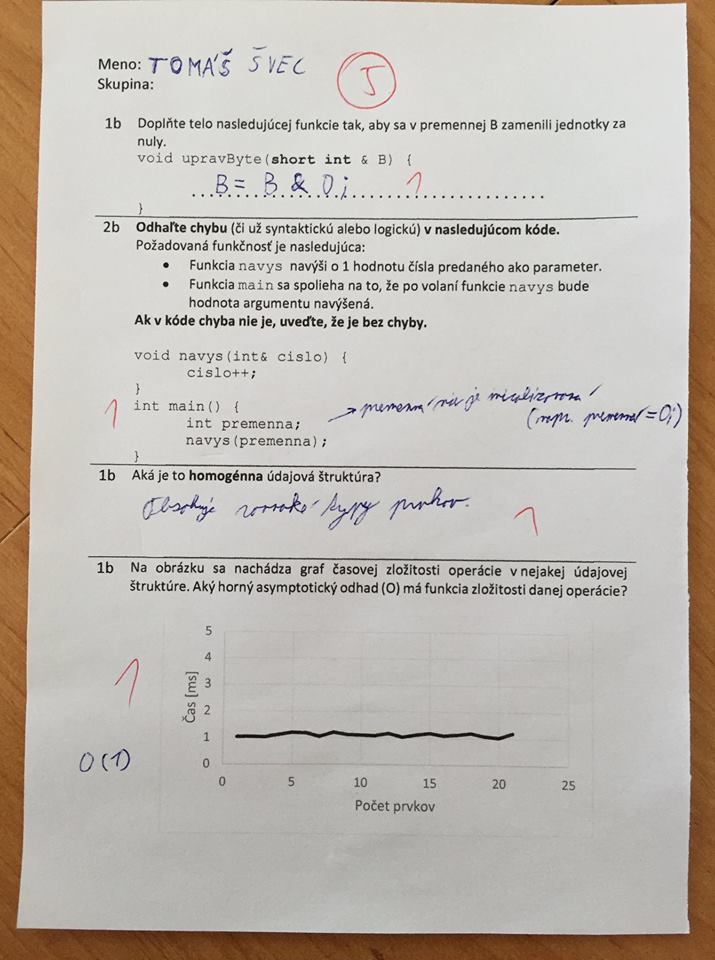 Meno: TOMÁŠ ŠVEC
Skupina:
5
1b Doplňte telo nasledujúcej funkcie tak, aby sa v premennej B zamenili jednotky za
nuly.
void upravByte(short int & B) {
B = B & 0; 1
}
2b Odhaľte chybu (či už syntaktickú alebo logickú) v nasledujúcom kóde.
Požadovaná funkčnosť je nasledujúca:
• Funkcia navys navýši o 1 hodnotu čísla predaného ako parameter.
• Funkcia main sa spolieha na to, že po volaní funkcie navys bude
hodnota argumentu navýšená.
Ak v kóde chyba nie je, uveďte, že je bez chyby.
void navys(int& cislo) {
cislo++;
}
1 int main() {
int premenna; → premenná nie je inicializovaná
navys(premenna); (napr. premenna = 0;)
}
1b Aká je to homogénna údajová štruktúra?
Obsahuje rovnaké typy prvkov. 1
1b Na obrázku sa nachádza graf časovej zložitosti operácie v nejakej údajovej
štruktúre. Aký horný asymptotický odhad (O) má funkcia zložitosti danej operácie?
1
O(1)
Čas [ms]
5
4
3
2
1
0
0 5 10 15 20 25
Počet prvkov